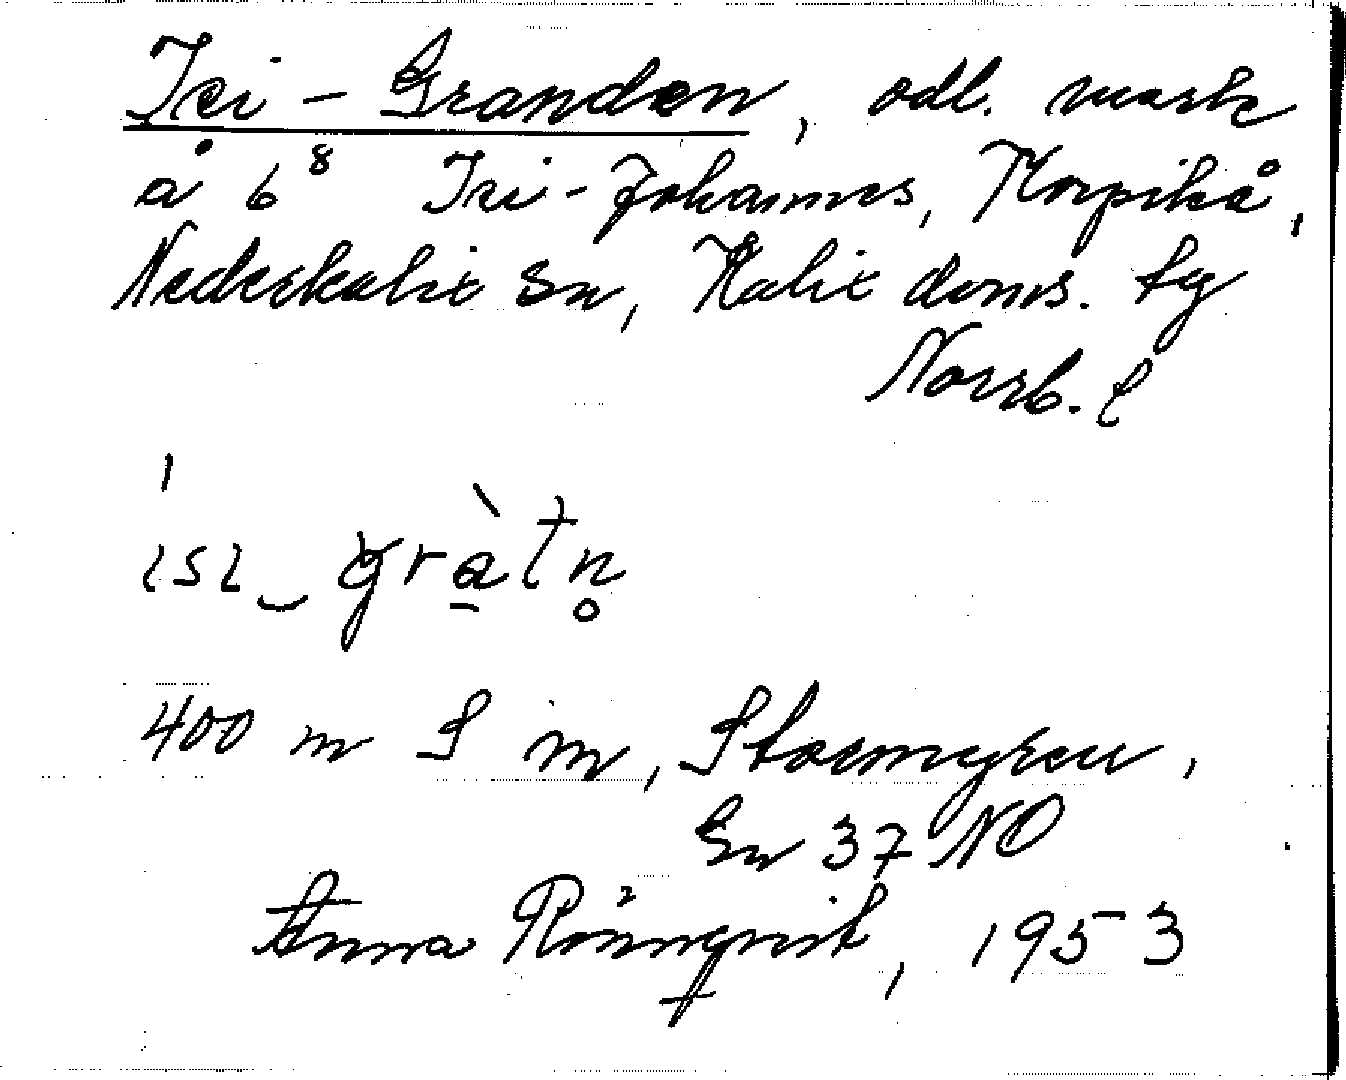 Isi-Granden, odl. mark
å 6⁸ Isi-Johannes, Korpikå,
Nederkalix sn, Kalix doms. tg
Norrb. l
ısı‿ gràtn̥
400 m S m, Stormyren,
Sn 37 NO
Anna Rönnqvist, 1953